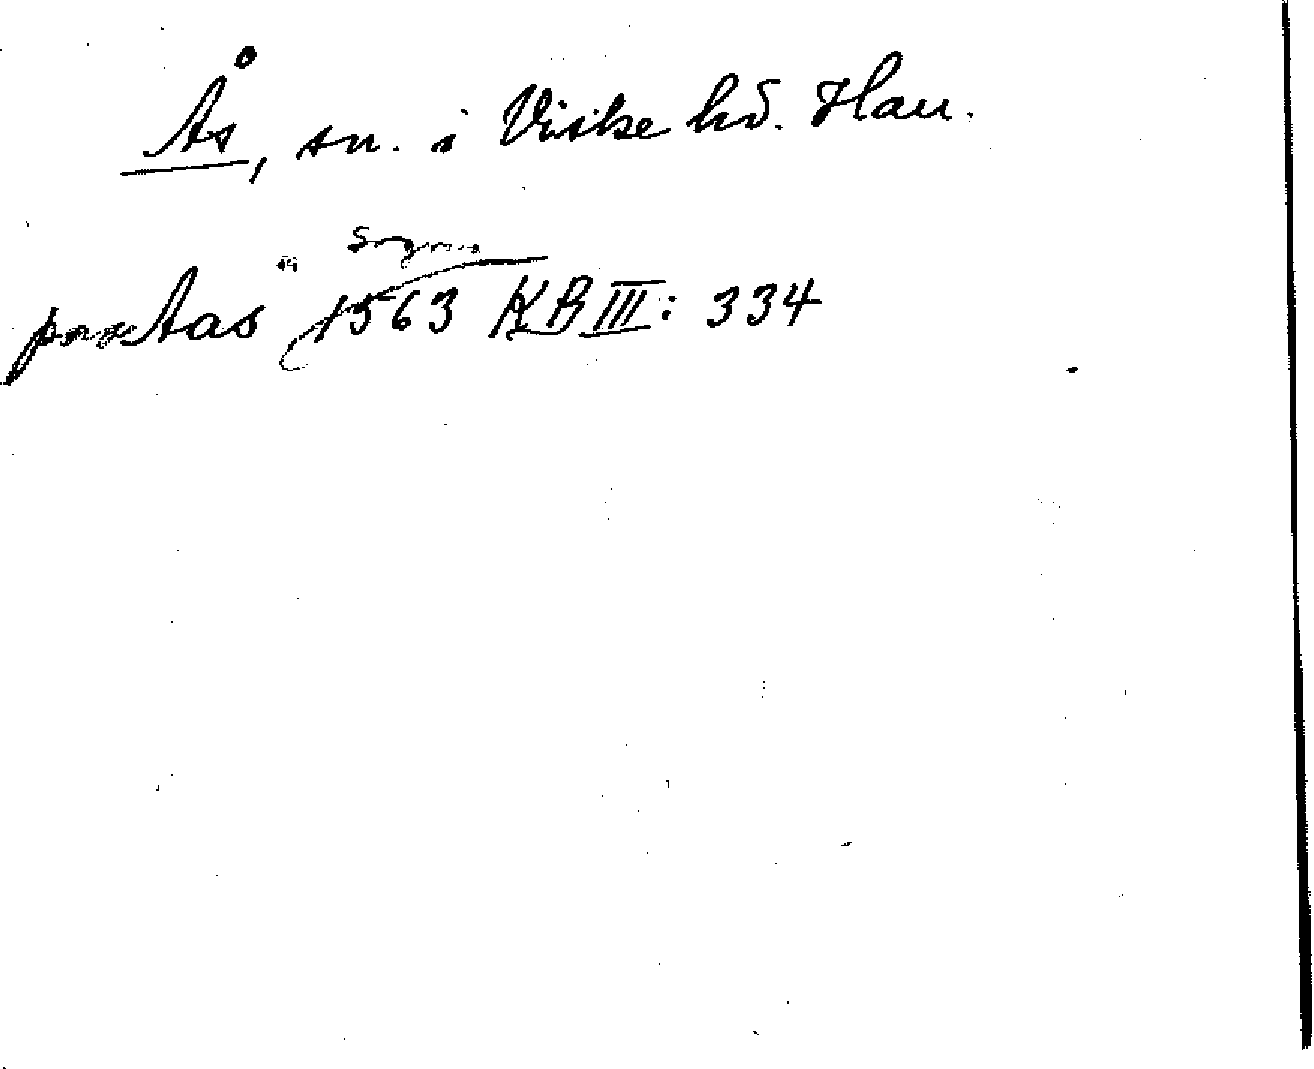 Ås, sn. i Viske hd. Hall.
Sogn
paa Aas 1563 KB III: 334